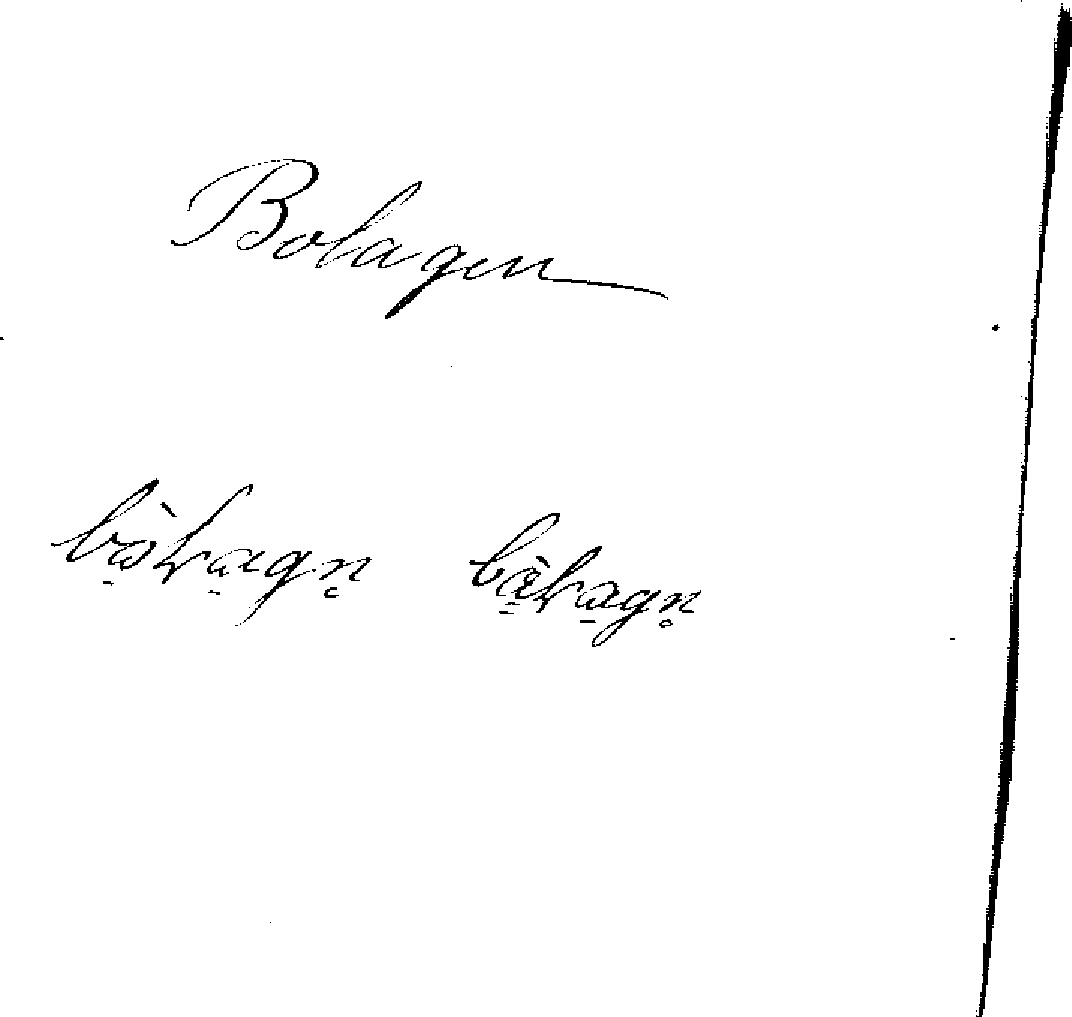 Bolagen
bòłagn̥ bàłagn̥